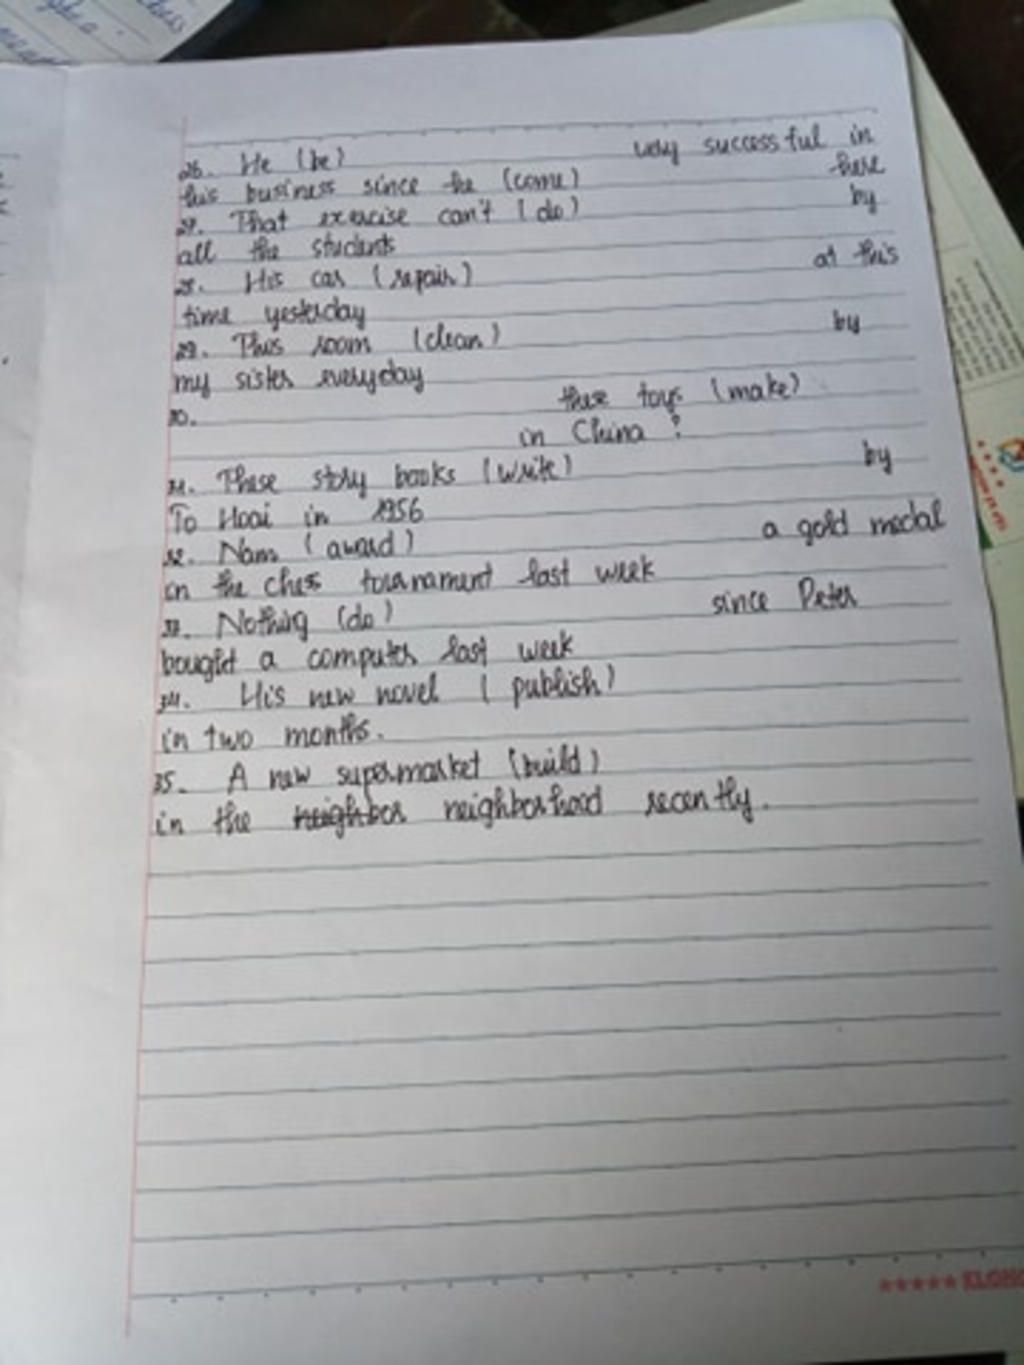 26. He (be) very successful in
this business since he (come) there
27. That exercise can't (do) by
all the students
28. His car (repair) at this
time yesterday
29. This room (clean) by
my sister everyday
30. these toys (make)
in China ?
31. These story books (write) by
To Hoai in 1956
32. Nam (award) a gold medal
in the chess tournament last week
33. Nothing (do) since Peter
bought a computer last week
34. His new novel (publish)
in two months.
35. A new supermarket (build)
in the neighbor neighborhood recently.
KLONG